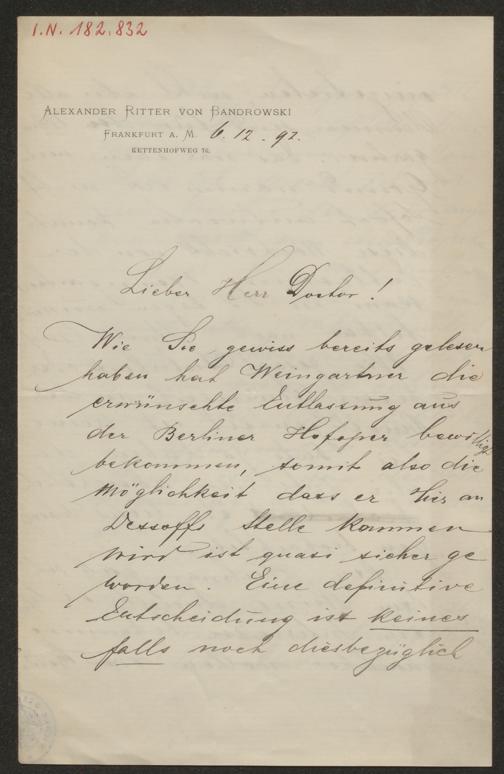 I.N. 182.832
ALEXANDER RITTER VON BANDROWSKI
FRANKFURT A. M. 6. 12. 92.
KETTENHOFWEG 76.
Lieber Herr Doctor!
Wie Sie gewiss bereits gelesen
haben hat Weingartner die
erwünschte Entlassung aus
der Berliner Hofoper bewilligt
bekommen, somit also die
Möglichkeit dass er hier an
Dessoffs Stelle kommen
wird ist quasi sicher ge
worden. Eine definitive
Entscheidung ist keines
falls noch diesbezüglich